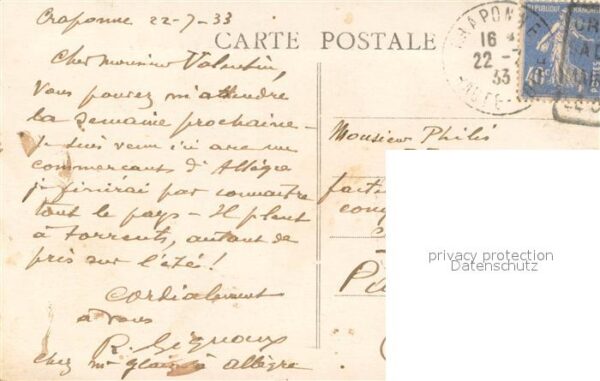 Craponne 22-7-33
CARTE POSTALE
Cher monsieur Valentin,
Vous pouvez m'attendre
la semaine prochaine -
Je suis venu ici avec un
commerçant d'Allègre
je finirai par connaitre
tout le pays - Il pleut
à torrents, autant de
pris sur l'été!
Cordialement
à vous
R. Gignoux
chez Mr à Allègre
CRAPONNE
16
22 -
33
HTE-
REPUBLIQUE FRANÇAISE
POSTES
Monsieur Philis
privacy protection
Datenschutz